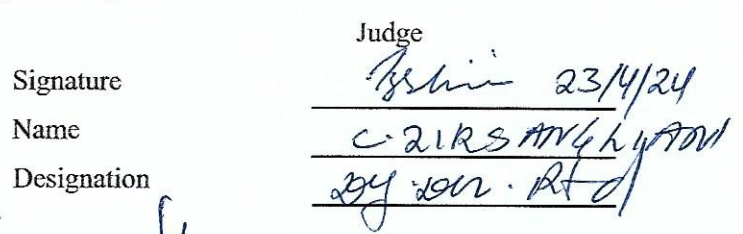 Judge
Signature 23/4/24
Name C. ZIRSANGLIANI
Designation Dy. Dir. Rtd